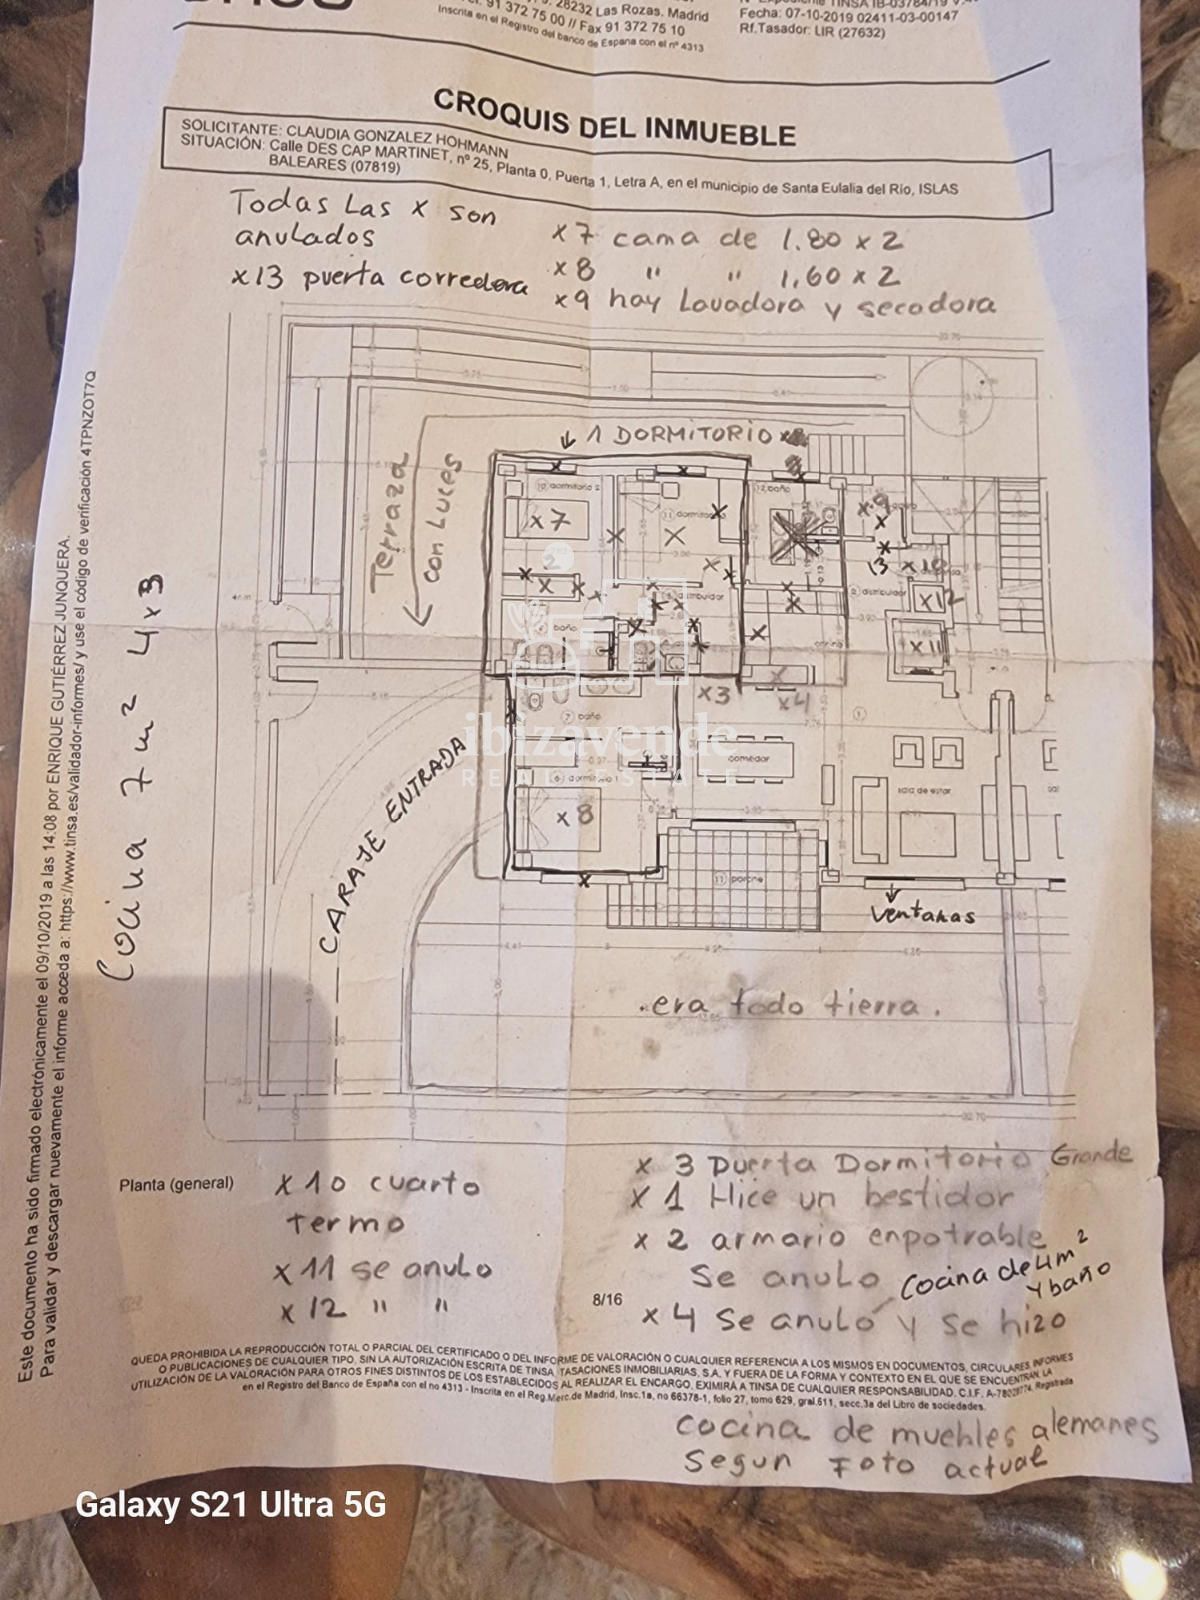 28232 Las Rozas. Madrid
91 372 75 00 // Fax 91 372 75 10
Inscrita en el Registro del banco de España con el nº 4313
Fecha: 07-10-2019 02411-03-00147
Rf.Tasador: LIR (27632)
CROQUIS DEL INMUEBLE
SOLICITANTE: CLAUDIA GONZALEZ HOHMANN
SITUACIÓN: Calle DES CAP MARTINET, nº 25, Planta 0, Puerta 1, Letra A, en el municipio de Santa Eulalia del Rio, ISLAS
BALEARES (07819)
Todas Las x son
anulados
x13 puerta corredera
x7 cama de 1.80 x 2
x8 " " 1,60 x 2
x9 hay Lavadora y secadora
1 DORMITORIO
Terraza
con Luces
dormitorio 2
x7
x9
x10
13
x12
x11
distribuidor
baño
x3
x4
baño
comedor
sala de estar
dormitorio 1
x8
porche
ventanas
GARAJE ENTRADA
ibizavende
REAL ESTATE
era todo tierra.
Cocina 7 m² 4x3
Este documento ha sido firmado electrónicamente el 09/10/2019 a las 14:08 por ENRIQUE GUTIÉRREZ JUNQUERA.
Para validar y descargar nuevamente el informe acceda a: https://www.tinsa.es/validador-informes/ y use el código de verificación 4TPNZOT7Q
Planta (general)
x 10 cuarto
termo
x 11 se anulo
x 12 " "
x 3 Puerta Dormitorio Grande
x 1 Hice un bestidor
x 2 armario enpotrable
se anulo
Cocina de 4m²
y baño
8/16
x 4 se anulo y se hizo
QUEDA PROHIBIDA LA REPRODUCCIÓN TOTAL O PARCIAL DEL CERTIFICADO O DEL INFORME DE VALORACIÓN O CUALQUIER REFERENCIA A LOS MISMOS EN DOCUMENTOS, CIRCULARES, INFORMES
O PUBLICACIONES DE CUALQUIER TIPO, SIN LA AUTORIZACIÓN ESCRITA DE TINSA, TASACIONES INMOBILIARIAS, S.A. Y FUERA DE LA FORMA Y CONTEXTO EN EL QUE SE ENCUENTRAN. LA
UTILIZACIÓN DE LA VALORACIÓN PARA OTROS FINES DISTINTOS DE LOS ESTABLECIDOS AL REALIZAR EL ENCARGO, EXIMIRÁ A TINSA DE CUALQUIER RESPONSABILIDAD. C.I.F. A-78029774. Registrada
en el Registro del Banco de España con el no 4313 - Inscrita en el Reg.Merc.de Madrid, Insc.1a, no 66378-1, folio 27, tomo 629, gral.611, secc.3a del Libro de sociedades.
cocina de muebles alemanes
segun Foto actual
Galaxy S21 Ultra 5G